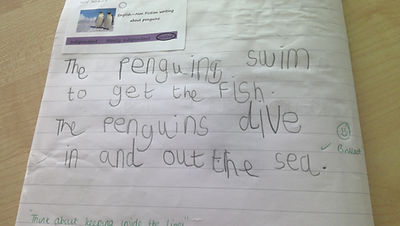 English - Non Fiction writing
about penguins
The penguing swim
to get the Fish.
The Penguins dive
in and out the sea.
Think about keeping inside the lines